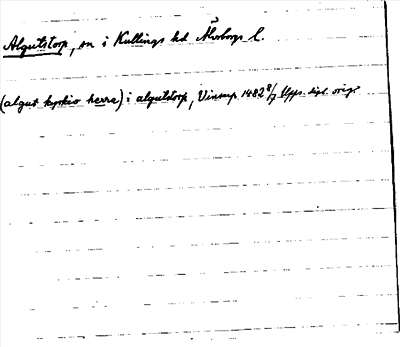 Algutstorp, sn i Kullings hd Älvborgs l.
(algut kyrkio herra) i algutstorp, Vinsup. 1482 8/7 Upps. dipl. orig.